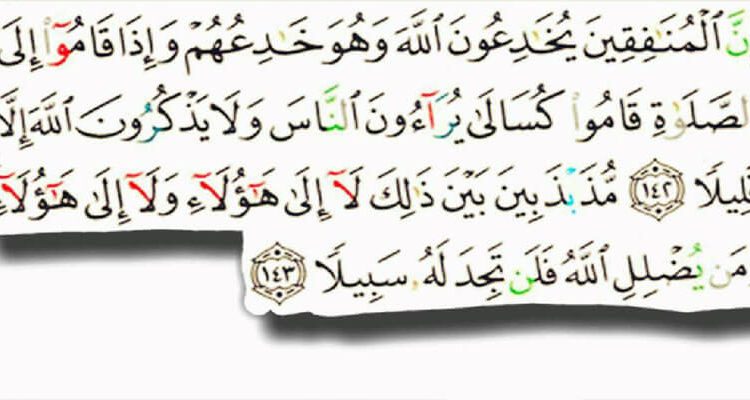 نَّ ٱلْمُنَٰفِقِينَ يُخَٰدِعُونَ ٱللَّهَ وَهُوَ خَٰدِعُهُمْ وَإِذَا قَامُوٓا۟ إِلَى
ٱلصَّلَوٰةِ قَامُوا۟ كُسَالَىٰ يُرَآءُونَ ٱلنَّاسَ وَلَا يَذْكُرُونَ ٱللَّهَ إِلَّا
قَلِيلًا ۝١٤٢ مُّذَبْذَبِينَ بَيْنَ ذَٰلِكَ لَآ إِلَىٰ هَٰٓؤُلَآءِ وَلَآ إِلَىٰ هَٰٓؤُلَآءِ
وَمَن يُضْلِلِ ٱللَّهُ فَلَن تَجِدَ لَهُۥ سَبِيلًا ۝١٤٣